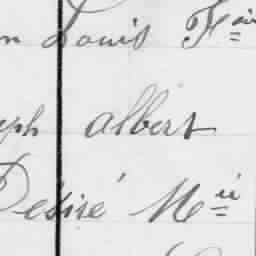 n Louis Fçois
eph Albert
Désiré Mie